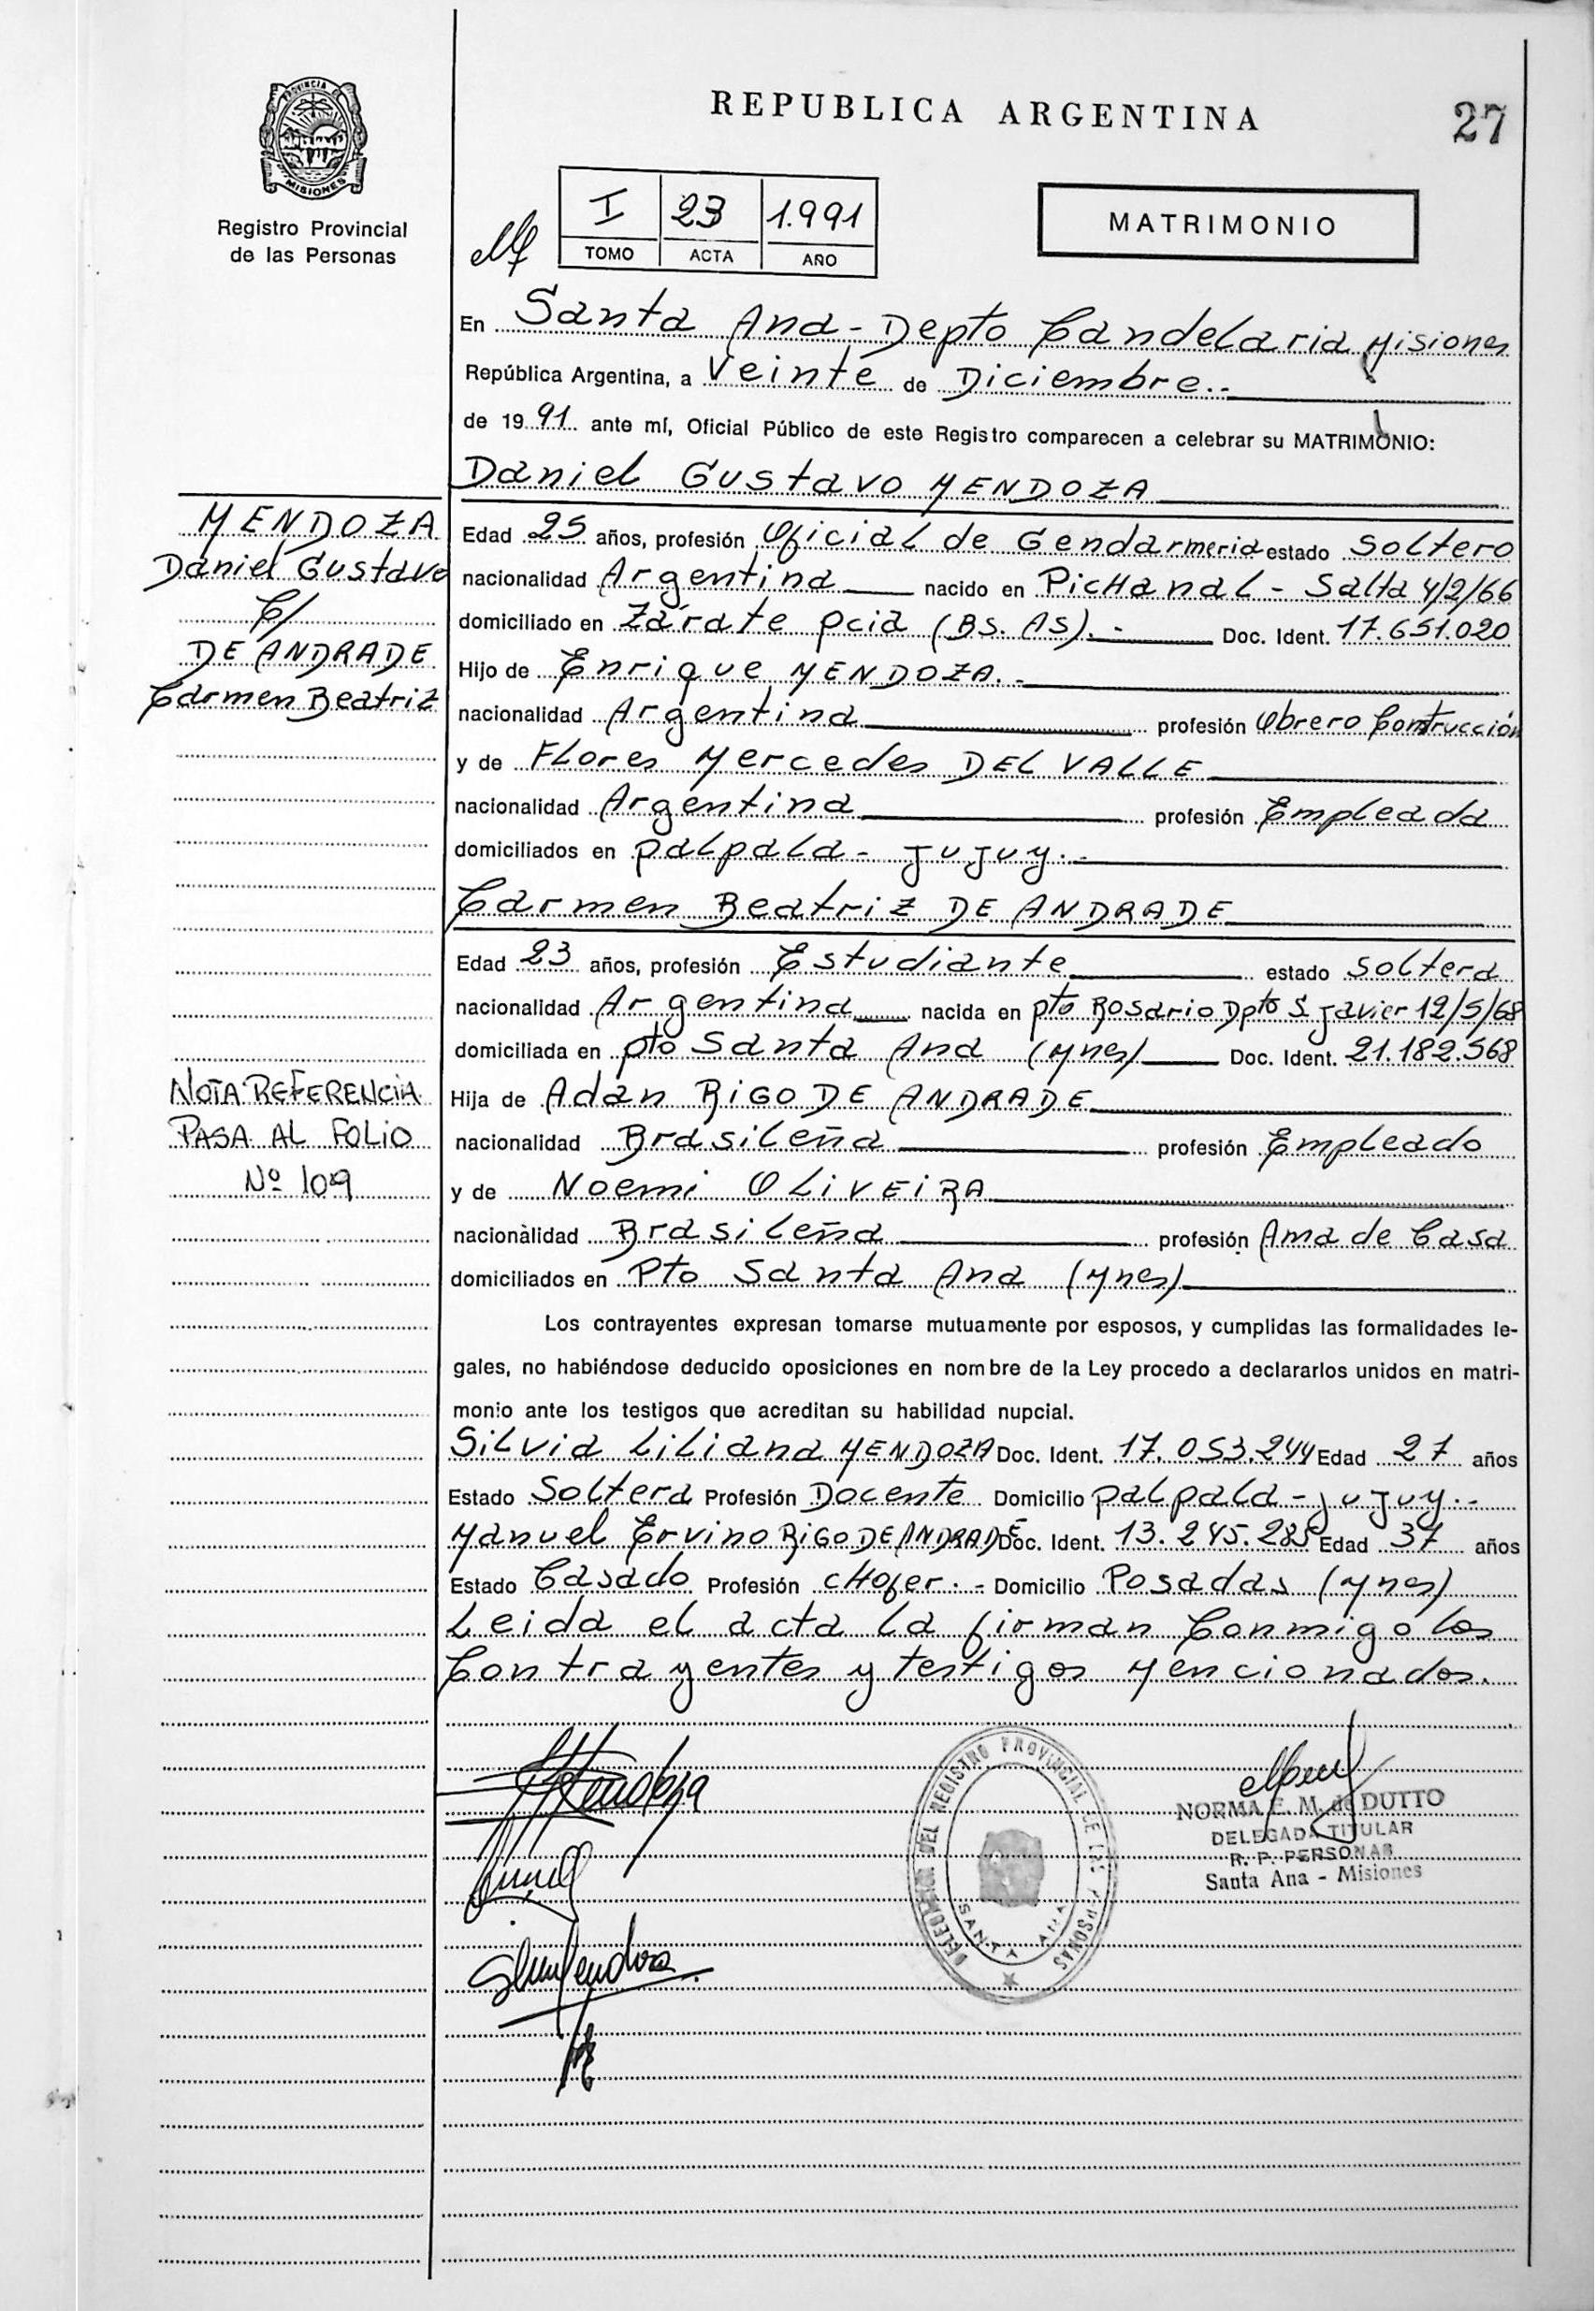 REPUBLICA ARGENTINA
27
PROVINCIA
MISIONES
Registro Provincial
de las Personas
I 23 1.991
TOMO ACTA AÑO
MATRIMONIO
En Santa Ana - Depto Candelaria Misiones
República Argentina, a Veinte de Diciembre.-
de 1991 ante mí, Oficial Público de este Registro comparecen a celebrar su MATRIMONIO:
Daniel Gustavo MENDOZA
Edad 25 años, profesión Oficial de Gendarmeria estado Soltero
nacionalidad Argentina nacido en PicHanal - Salta 4/2/66
domiciliado en Zárate pcia (BS. AS).- Doc. Ident. 17.651.020
Hijo de Enrique MENDOZA.-
nacionalidad Argentina profesión Obrero Contrucción
y de Flores Mercedes DEL VALLE
nacionalidad Argentina profesión Empleada
domiciliados en palpala - jujuy.-
Carmen Beatriz DE ANDRADE
Edad 23 años, profesión Estudiante estado Soltera
nacionalidad Argentina nacida en pto Rosario Dpto S. javier 12/5/68
domiciliada en pto Santa Ana (Mnes) Doc. Ident. 21.182.568
Hija de Adán RIGO DE ANDRADE
nacionalidad Brasileña profesión Empleado
y de Noemi OLIVEIRA
nacionalidad Brasileña profesión Ama de Casa
domiciliados en Pto Santa Ana (Mnes)
Los contrayentes expresan tomarse mutuamente por esposos, y cumplidas las formalidades le-
gales, no habiéndose deducido oposiciones en nombre de la Ley procedo a declararlos unidos en matri-
monio ante los testigos que acreditan su habilidad nupcial.
Silvia Liliana MENDOZA Doc. Ident. 17.053.244 Edad 27 años
Estado Soltera Profesión Docente Domicilio palpala - jujuy.-
Manuel Ervino RIGO DE ANDRADE Doc. Ident. 13.245.285 Edad 37 años
Estado Casado Profesión cHofer.- Domicilio Posadas (Mnes)
Leida el acta la firman Conmigo los
Contrayentes y testigos Mencionados.
MENDOZA
Daniel Gustavo
C/
DE ANDRADE
Carmen Beatriz
NOTA REFERENCIA
PASA AL FOLIO
Nº 109
Mendoza
Mendoza
DELEGACION DEL REGISTRO PROVINCIAL DE LAS PERSONAS
SANTA ANA
NORMA E. M. de DUTTO
DELEGADA TITULAR
R. P. PERSONAS
Santa Ana - Misiones